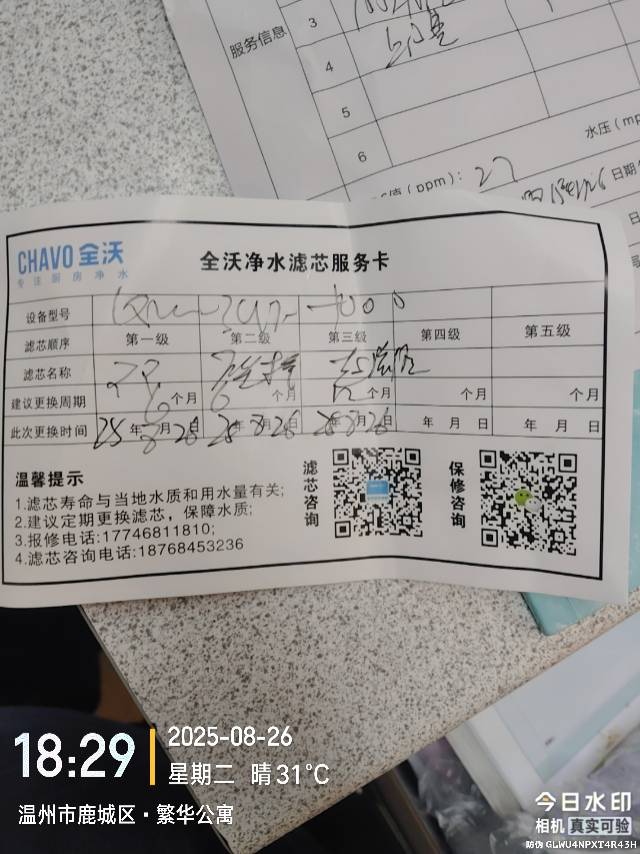 服务信息
3
4
5
6
水压(mp
值(ppm): 27
日期
CHAVO 全沃
专注厨房净水
全沃净水滤芯服务卡
设备型号
滤芯顺序 第一级 第二级 第三级 第四级 第五级
滤芯名称 PP
建议更换周期 6个月 6个月 12个月 个月 个月
此次更换时间 25年8月26日 25年8月26日 25年8月26日 年 月 日 年 月 日
温馨提示
1.滤芯寿命与当地水质和用水量有关;
2.建议定期更换滤芯，保障水质;
3.报修电话:17746811810;
4.滤芯咨询电话:18768453236
滤芯咨询
保修咨询
18:29
2025-08-26
星期二 晴31℃
温州市鹿城区·繁华公寓
今日水印
相机 真实可验
防伪 GLWU4NPXT4R43H